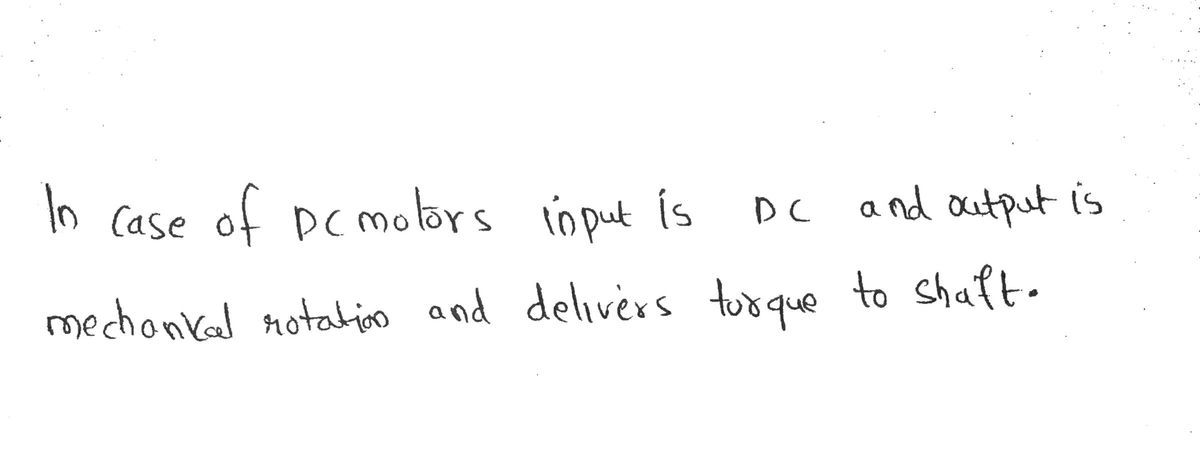 In case of DC motors input is DC and output is
mechanical rotation and delivers torque to shaft.